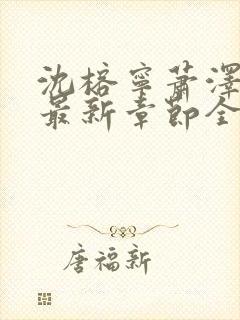 沈榕宁萧泽
最新章节全
唐福新